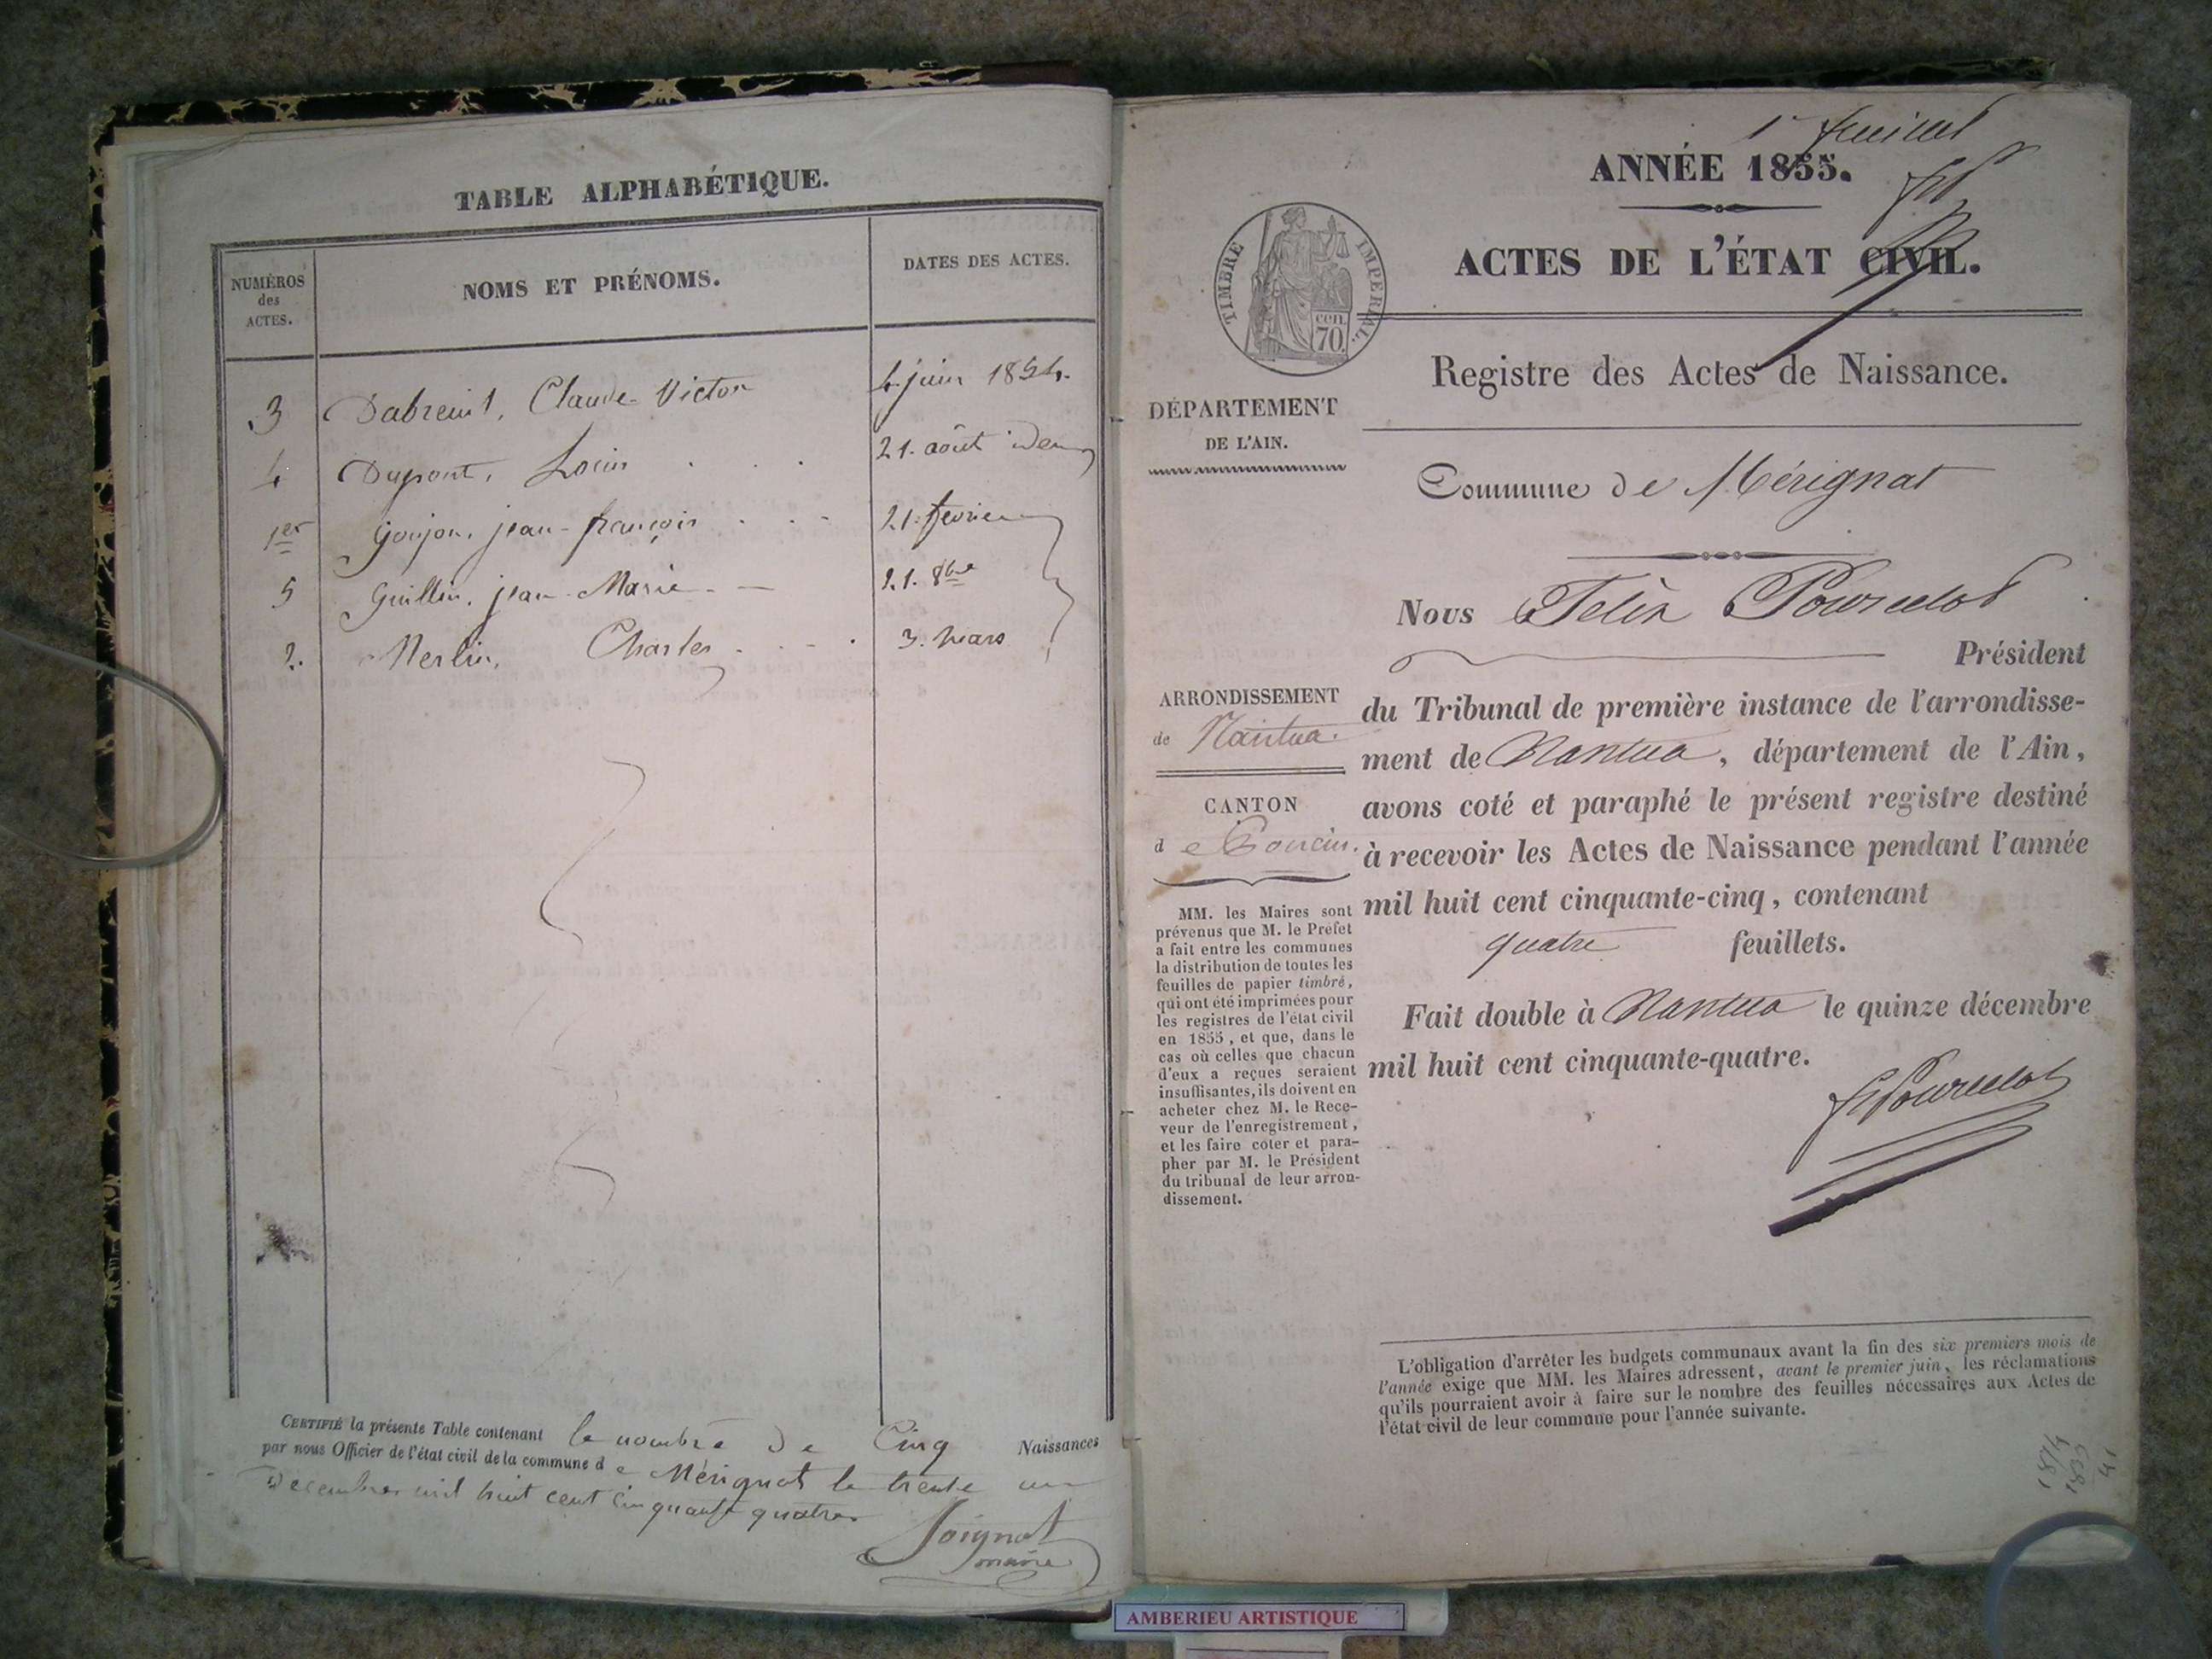 TABLE ALPHABÉTIQUE.
NUMÉROS
des
ACTES.
NOMS ET PRÉNOMS.
DATES DES ACTES.
3 Dabreuil, Claude-Victor 4 juin 1854.
4 Dupont, Louis 21. août idem
1er Goujon, jean-françois 21. fevrier
5 Guillin, jean-Marie 21. 8bre
2. Merlin, Charles 3. mars
CERTIFIÉ la présente Table contenant le nombre de Cinq Naissances
par nous Officier de l'état civil de la commune de Mérignat le trente un
Decembre mil huit cent cinquante quatre
Joignat
maire
1er feuillet
ANNÉE 1855.
ACTES DE L'ÉTAT CIVIL.
TIMBRE IMPÉRIAL.
cen.
70.
Registre des Actes de Naissance.
DÉPARTEMENT
DE L'AIN.
Commune de Mérignat
Nous Felix Pourcelot
Président
du Tribunal de première instance de l'arrondisse-
ment de Nantua, département de l'Ain,
avons coté et paraphé le présent registre destiné
à recevoir les Actes de Naissance pendant l'année
mil huit cent cinquante-cinq, contenant
quatre feuillets.
Fait double à Nantua le quinze décembre
mil huit cent cinquante-quatre.
FPourcelot
ARRONDISSEMENT
de Nantua.
CANTON
de Poncin.
MM. les Maires sont
prévenus que M. le Préfet
a fait entre les communes
la distribution de toutes les
feuilles de papier timbré,
qui ont été imprimées pour
les registres de l'état civil
en 1855, et que, dans le
cas où celles que chacun
d'eux a reçues seraient
insuffisantes, ils doivent en
acheter chez M. le Rece-
veur de l'enregistrement,
et les faire coter et para-
pher par M. le Président
du tribunal de leur arron-
dissement.
L'obligation d'arrêter les budgets communaux avant la fin des six premiers mois de
l'année exige que MM. les Maires adressent, avant le premier juin, les réclamations
qu'ils pourraient avoir à faire sur le nombre des feuilles nécessaires aux Actes de
l'état civil de leur commune pour l'année suivante.
AMBERIEU ARTISTIQUE